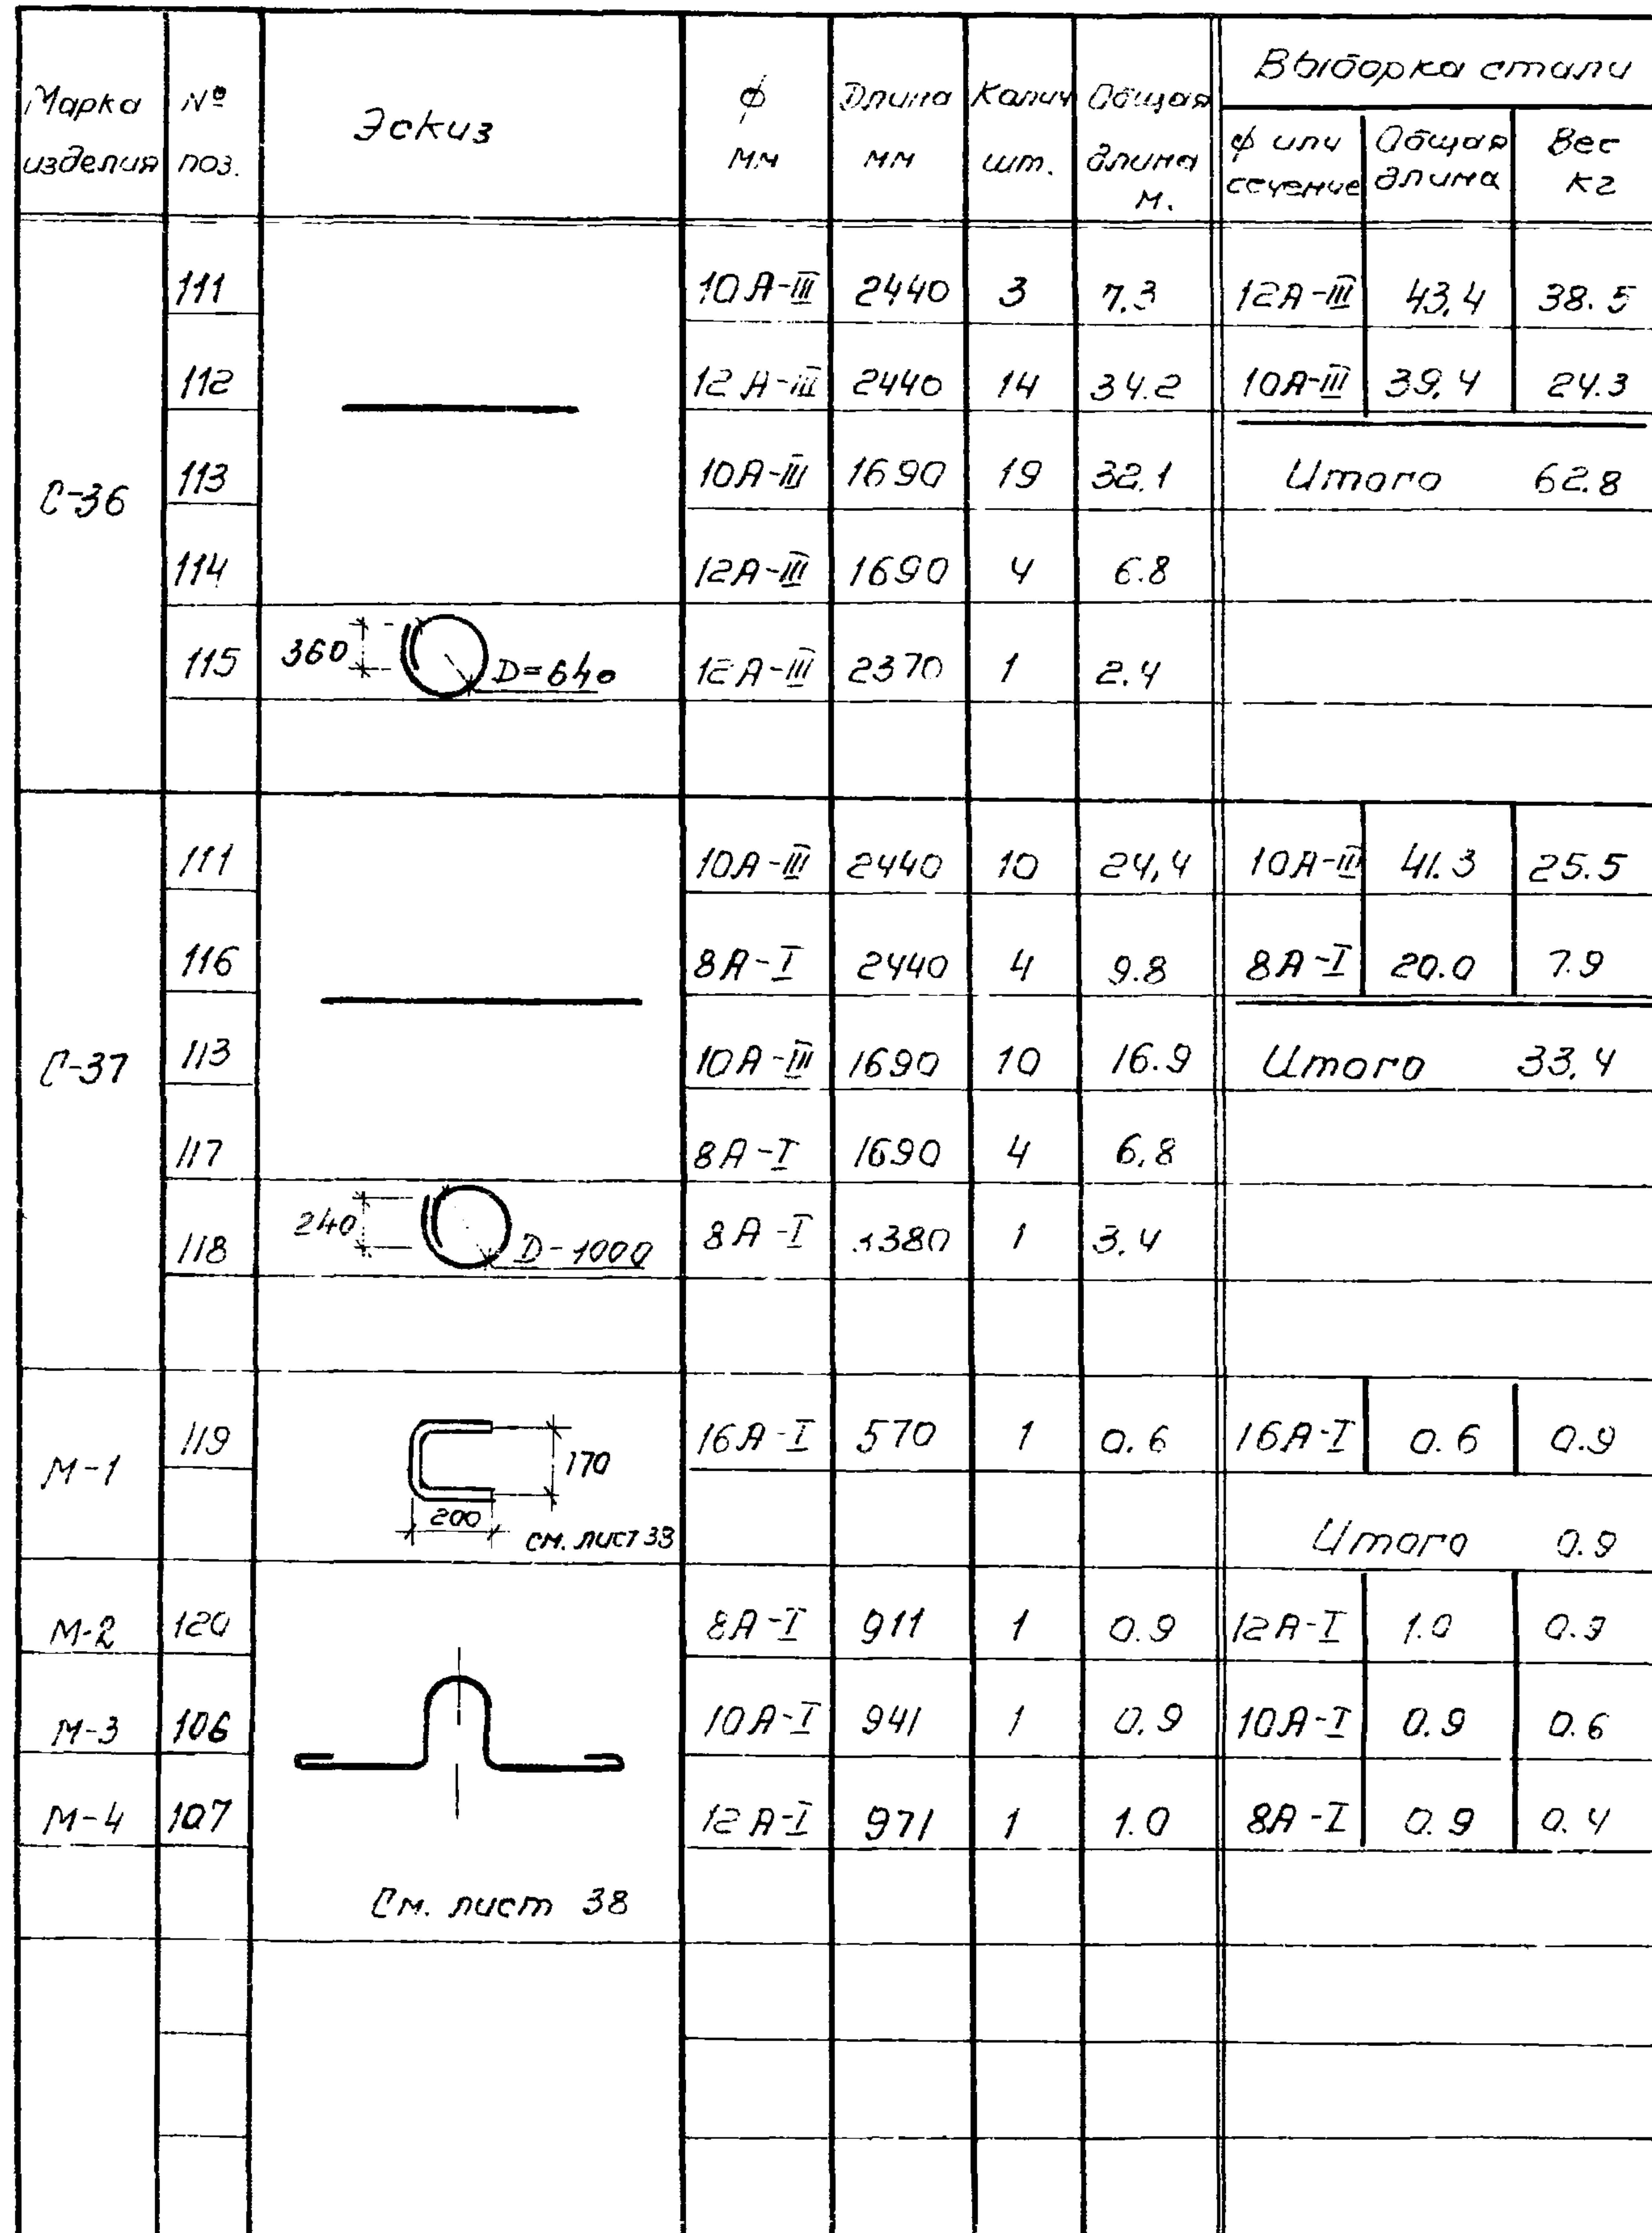 Марка изделия № поз. Эскиз ф мм Длина мм Колич шт. Общая длина м. Выборка стали
ф или сечение Общая длина Вес кг
С-36
111 10А-III 2440 3 7.3 12А-III 43,4 38.5
112 12А-III 2440 14 34.2 10А-III 39,4 24.3
113 10А-III 1690 19 32.1 Итого 62.8
114 12А-III 1690 4 6.8
115 360 D=640 12А-III 2370 1 2.4
С-37
111 10А-III 2440 10 24,4 10А-III 41.3 25.5
116 8А-I 2440 4 9.8 8А-I 20.0 7.9
113 10А-III 1690 10 16.9 Итого 33,4
117 8А-I 1690 4 6,8
118 240 D-1000 8А-I 3380 1 3,4
М-1 119 170 200 см. лист 38 16А-I 570 1 0.6 16А-I 0.6 0.9
Итого 0.9
М-2 120 8А-I 911 1 0.9 12А-I 1.0 0.9
М-3 106 10А-I 941 1 0.9 10А-I 0.9 0.6
М-4 107 12А-I 971 1 1.0 8А-I 0.9 0.4
См. лист 38